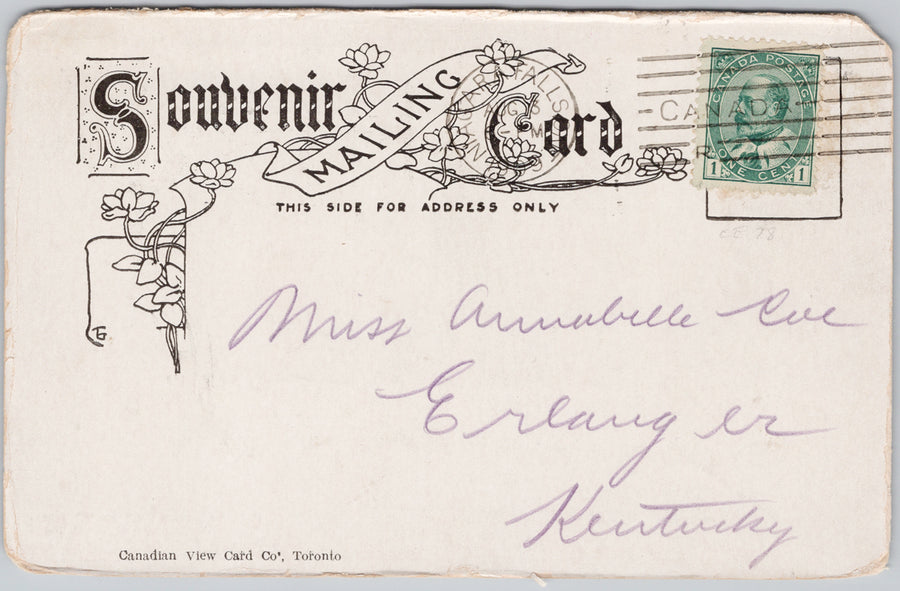 Souvenir MAILING Card
THIS SIDE FOR ADDRESS ONLY
FALLS
CANADA
CANADA POSTAGE
1 ONE CENT 1
CE 78
Miss Annabelle Coe
Erlanger
Kentucky
Canadian View Card Co', Toronto